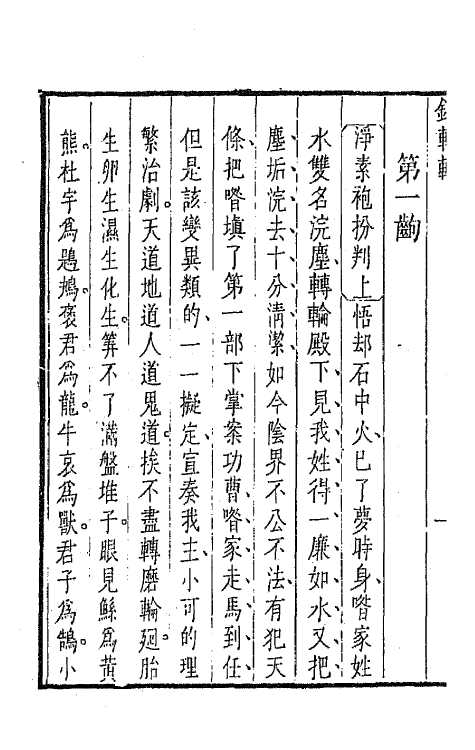 第一齣
淨素袍扮判上悟却石中火、已了夢時身、喒家姓
水雙名浣塵、轉輪殿下、見我姓得一廉如水、又把
塵垢浣去十分清潔、如今陰界不公不法、有犯天
條、把喒填了第一部下掌案功曹、喒家走馬到任、
但是該變異類的、一一擬定、宣奏我主、小可的理
繁治劇。天道地道人道鬼道、挨不盡轉磨輪廻胎
生卵生濕生化生。筭不了滿盤堆子。眼見鯀爲黃
熊。杜宇爲鶗鴂。褒君爲龍。牛哀爲獸。君子爲鵠。小
一